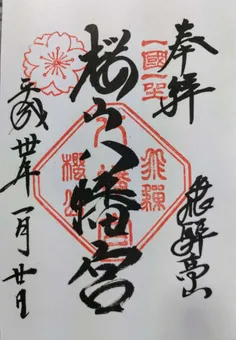 奉拝
一國一社
飛騨高山
桜山八幡宮
八幡宮
飛騨
櫻山
平成卅年一月廿日